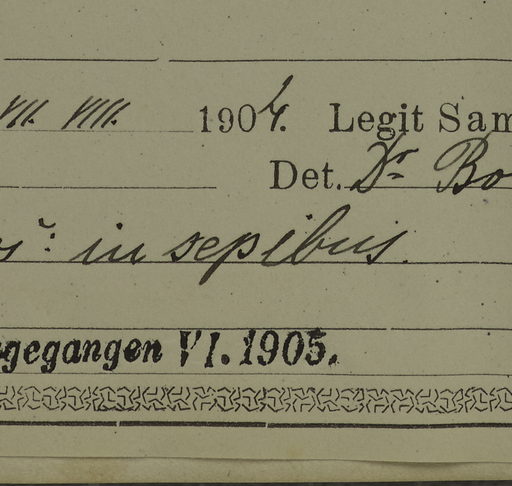 VII. VIII. 1904. Legit Sam
Det. Dr Bo
in sepibus.
gegangen VI. 1905.